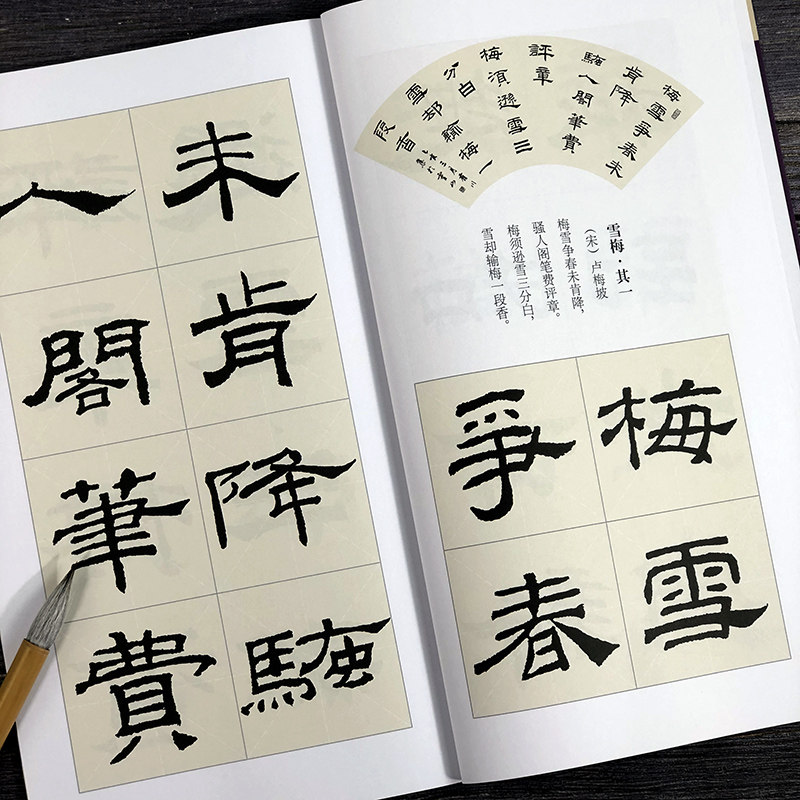 梅雪爭春未
肯降
騷人閣筆費
評章
梅湏遜雪三
分白
雪却輸梅一
段香
雪梅·其一
（宋）卢梅坡
梅雪争春未肯降，
骚人阁笔费评章。
梅须逊雪三分白，
雪却输梅一段香。
梅雪
爭春
未肯降騷
人閣筆費